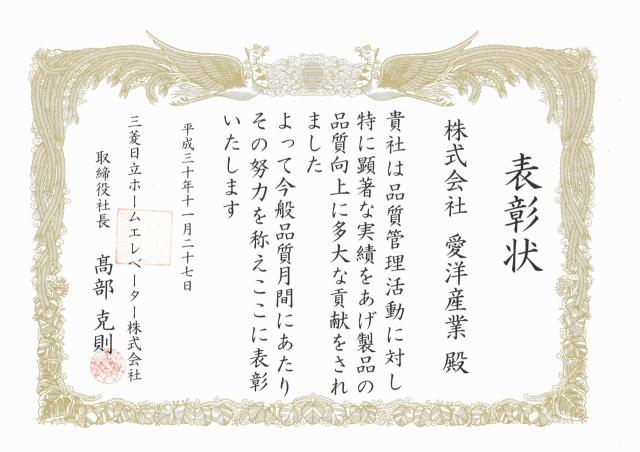 表彰状
株式会社 愛洋産業 殿
貴社は品質管理活動に対し
特に顕著な実績をあげ製品の
品質向上に多大な貢献をされ
ました
よって今般品質月間にあたり
その努力を称えここに表彰
いたします
平成三十年十一月二十七日
三菱日立ホームエレベーター株式会社
取締役社長 髙部 克則